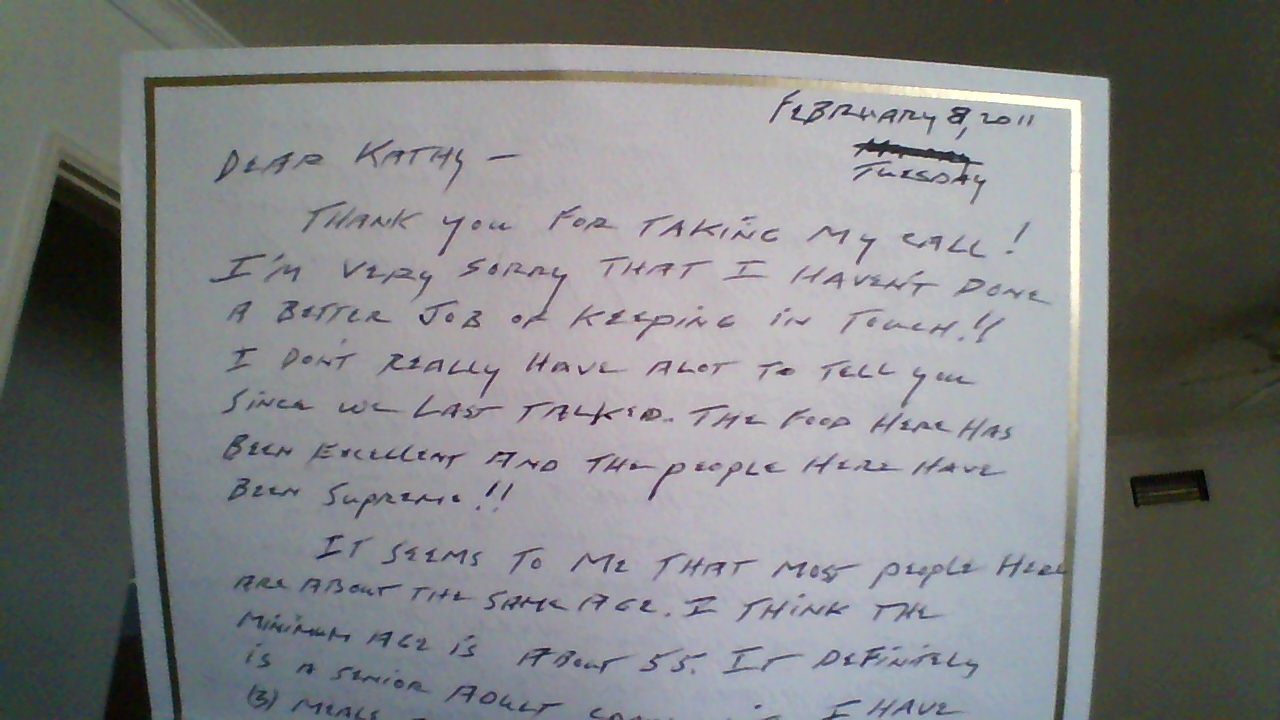 FEBRUARY 8, 2011
TUESDAY
DEAR KATHY —
THANK you FOR TAKING My CALL!
I'M VERy SORRy THAT I HAVEN'T DONE
A BETTER JOB OF KEEPING IN TOUCH!!
I DON'T REALLY HAVE ALOT TO TELL you
SINCE WE LAST TALKED. THE FOOD HERE HAS
BEEN EXCELLENT AND THE PEOPLE HERE HAVE
BEEN SUPREME!!
IT SEEMS TO ME THAT MOST PEOPLE HERE
ARE ABOUT THE SAME AGE. I THINK THE
MINIMUM AGE IS ABOUT 55. IT DEFINITELY
IS A SENIOR ADULT I HAVE
(3) MEALS